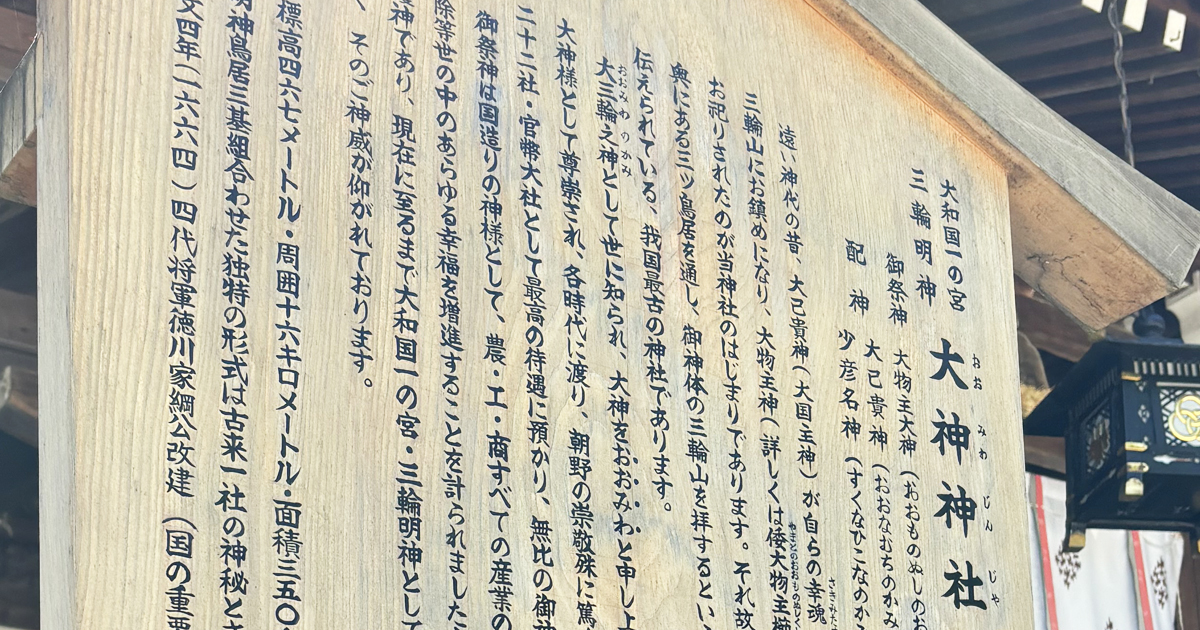 大和国一の宮
三輪明神
大神神社
おおみわじんじゃ
御祭神 大物主大神（おおものぬしのお
大己貴神（おおなむちのかみ
配神 少彦名神（すくなひこなのか
遠い神代の昔、大己貴神（大国主神）が自らの幸魂
さきみた
三輪山にお鎮めになり、大物主神（詳しくは倭大物主
やまとのおおものぬしく
お祀りされたのが当神社のはじまりであります。それ故
奥にある三ツ鳥居を通し、御神体の三輪山を拝するとい
伝えられている、我国最古の神社であります。
大三輪之神として世に知られ、大神をおおみわと申し上
おおみわのかみ
大神様として尊崇され、各時代に渡り、朝野の崇敬殊に篤
二十二社・官幣大社として最高の待遇に預かり、無比の御神
御祭神は国造りの神様として、農・工・商すべての産業の
除等世の中のあらゆる幸福を増進することを計られました
神であり、現在に至るまで大和国一の宮・三輪明神として
、そのご神威が仰がれております。
標高四六七メートル・周囲十六キロメートル・面積三五〇
明神鳥居三基組合わせた独特の形式は古来一社の神秘と
文四年（一六六四）四代将軍徳川家綱公改建（国の重要